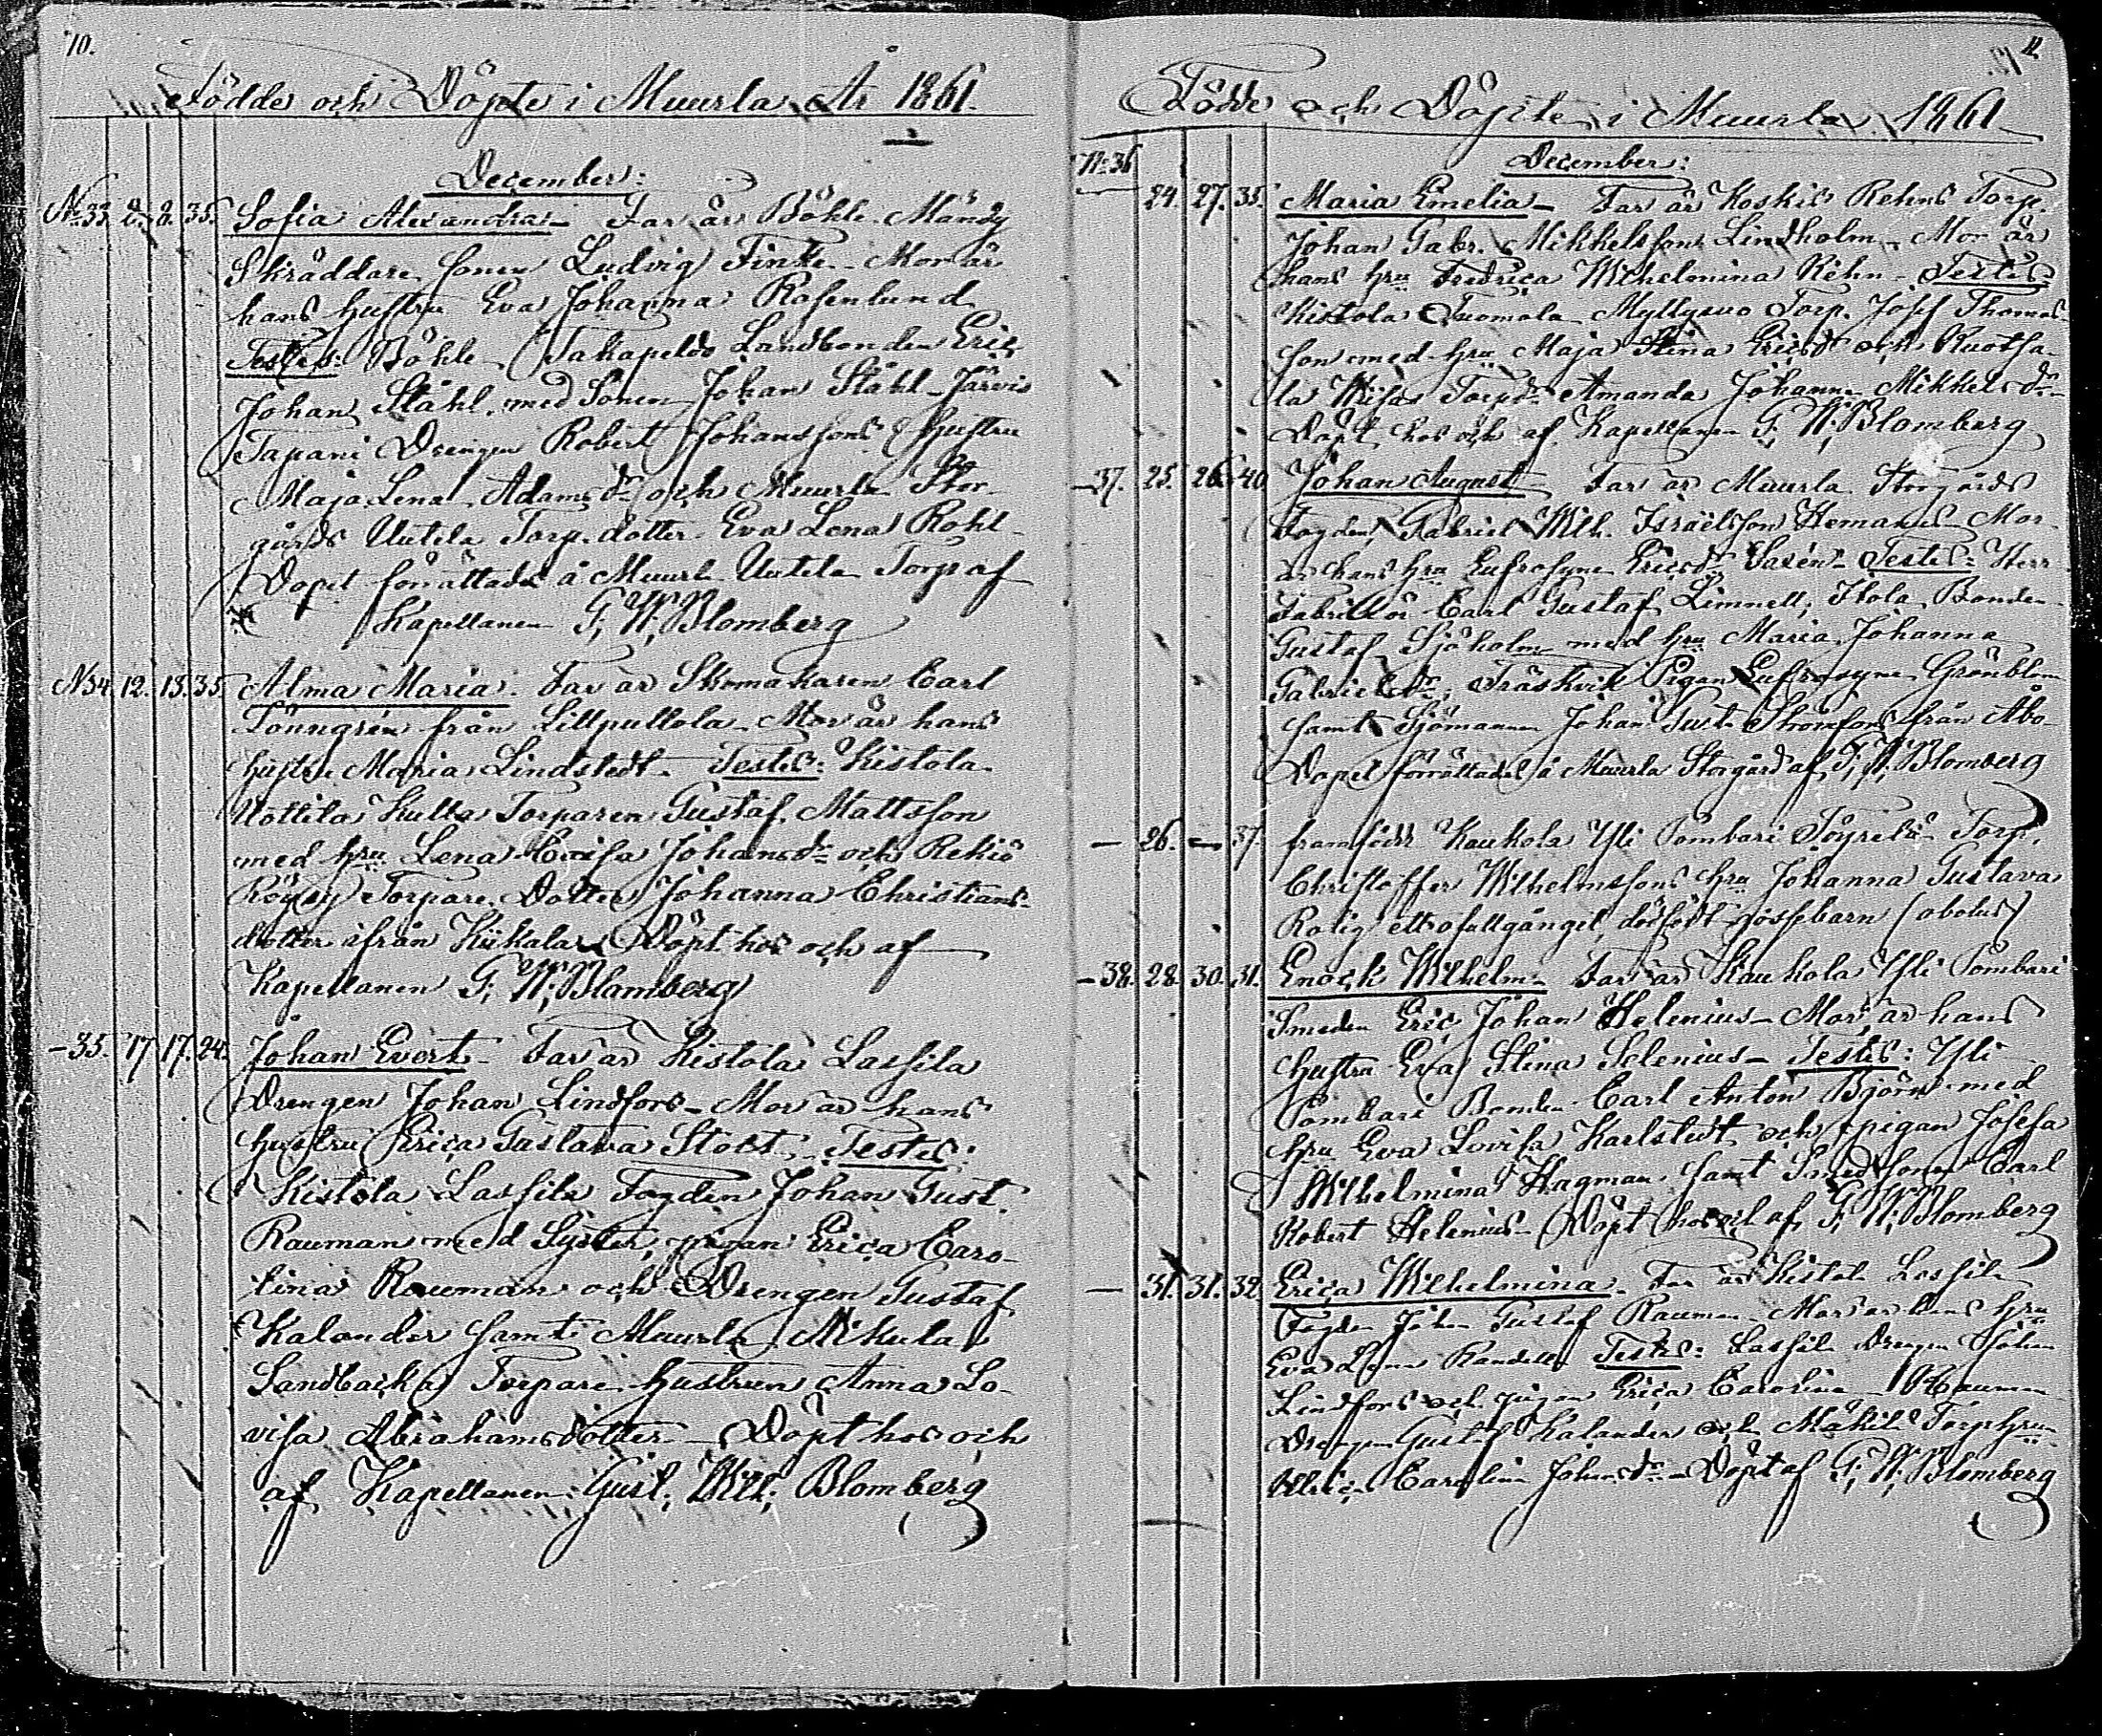 10.
Födde och Döpte i Muurla År 1861.
December:
No 33. 2. 8. 35. Sofia Alexandra – Far är Böhle Mändy
Skräddare sonen Ludvig Finke – Mor är
hans hustru Eva Johanna Rosenlund
Testes: Böhle Takapeldo Landbonden Eric
Johan Ståhl, med Sonen Johan Ståhl – Järvis
Tapani Drengen Robert Johanssons Hustru
Maja Lena Adamsdr och Muurla Stor-
gårds Uutela Torp. dotter Eva Lena Rohl-
Dopet förrättades å Muurla Uutela Torp af
Kapellanen G; W; Blomberg
No 34. 12. 13. 35. Alma Maria. Far är Skomakaren Carl
Lönngrén från Lillpullola – Mor är hans
hustru Maria Lindstedt – Testes: Kistola
Nottila Kulla Torparen Gustaf Mattsson
med hru Lena Caisa Johansdr och Rekiö
Röysy Torpare Dotter Johanna Christians-
dotter ifrån Kiikala – Döpt hos och af
Kapellanen G; W; Blomberg
– 35. 17. 17. 24. Johan Evert – Far är Kistola Lassila
Drengen Johan Lindfors – Mor är hans
hustru Erica Gustava Stolt – Testes:
Kistola Lassila Fogden Johan Gust.
Rauman med Syster, pigan Erica Caro-
lina Rauman och Drengen Gustaf
Kalander samt Muurla Mikula
Sandbacka Torpare hustrun Anna Lo-
visa Abrahamsdotter – Döpt hos och
af Kapellanen Gust. Wilh; Blomberg
11.
Födde och Döpte i Muurla 1861
December:
No 36 24. 27. 35. Maria Emelia – Far är Koskis Rehns Torp.
Johan Gabr. Mikkelsson Lindholm – Mor är
hans hru Fredrica Wilhelmina Rehn – Testes:
Kistola Tuomola Myllysuo Torp. Josef Thomas-
son med hru Maja Stina Ericsdr och Ruotsa-
la Torpdr Amanda Johanna Mikkelsdr –
Döpt hos och af Kapellanen G; W; Blomberg
– 37. 25. 26. 40. Johan August – Far är Muurla Storgårds
Fogden Gabriel Wilh. Israelsson Hemanus – Mor
är hans hru Eufrosyne Ericsdr Saxén – Testes: Herr
Fabrikör Carl Gustaf Limnell, Ihola Bonden
Gustaf Sjöholm med hru Maria Johanna
Gabrielsdr, Träskvik Pigan Eufrosyne Grönblom
samt Sjömannen Johan Gust. Strömfors från Åbo –
Dopet förrättades å Muurla Storgård af G; W; Blomberg
– 26. – 37. framfödde Kaukola Yli Pombari Töyrilä Torp.
Christoffer Wilhelmssons hru Johanna Gustava
Rolig ett ofullgånget, dödfödt gossebarn (abolus)
– 38. 28. 30. 31. Enock Wilhelm – Far är Kaukola Yli Pombari
Smeden Eric Johan Helenius – Mor är hans
hustru Eva Stina Selenius – Testes: Yli
Pombari Bonden Carl Anton Björn med
hru Eva Lovisa Karlstedt och pigan Josefa
Wilhelmina Hagman samt Smedssonen Carl
Robert Helenius – Döpt hos och af G; W; Blomberg
– 31. 31. 32. Erica Wilhelmina – Far är Kistola Lassila
Fogden Johan Gustaf Rauman – Mor är hans hru
Eva Lena Randell – Testes: Lassila Drengen Johan
Lindfors och pigan Erica Carolina Rauman
Drengen Gustaf Kalander och Mäkilä Torphru
Ulrica Carolina Johansdr – Döpt af G; W; Blomberg